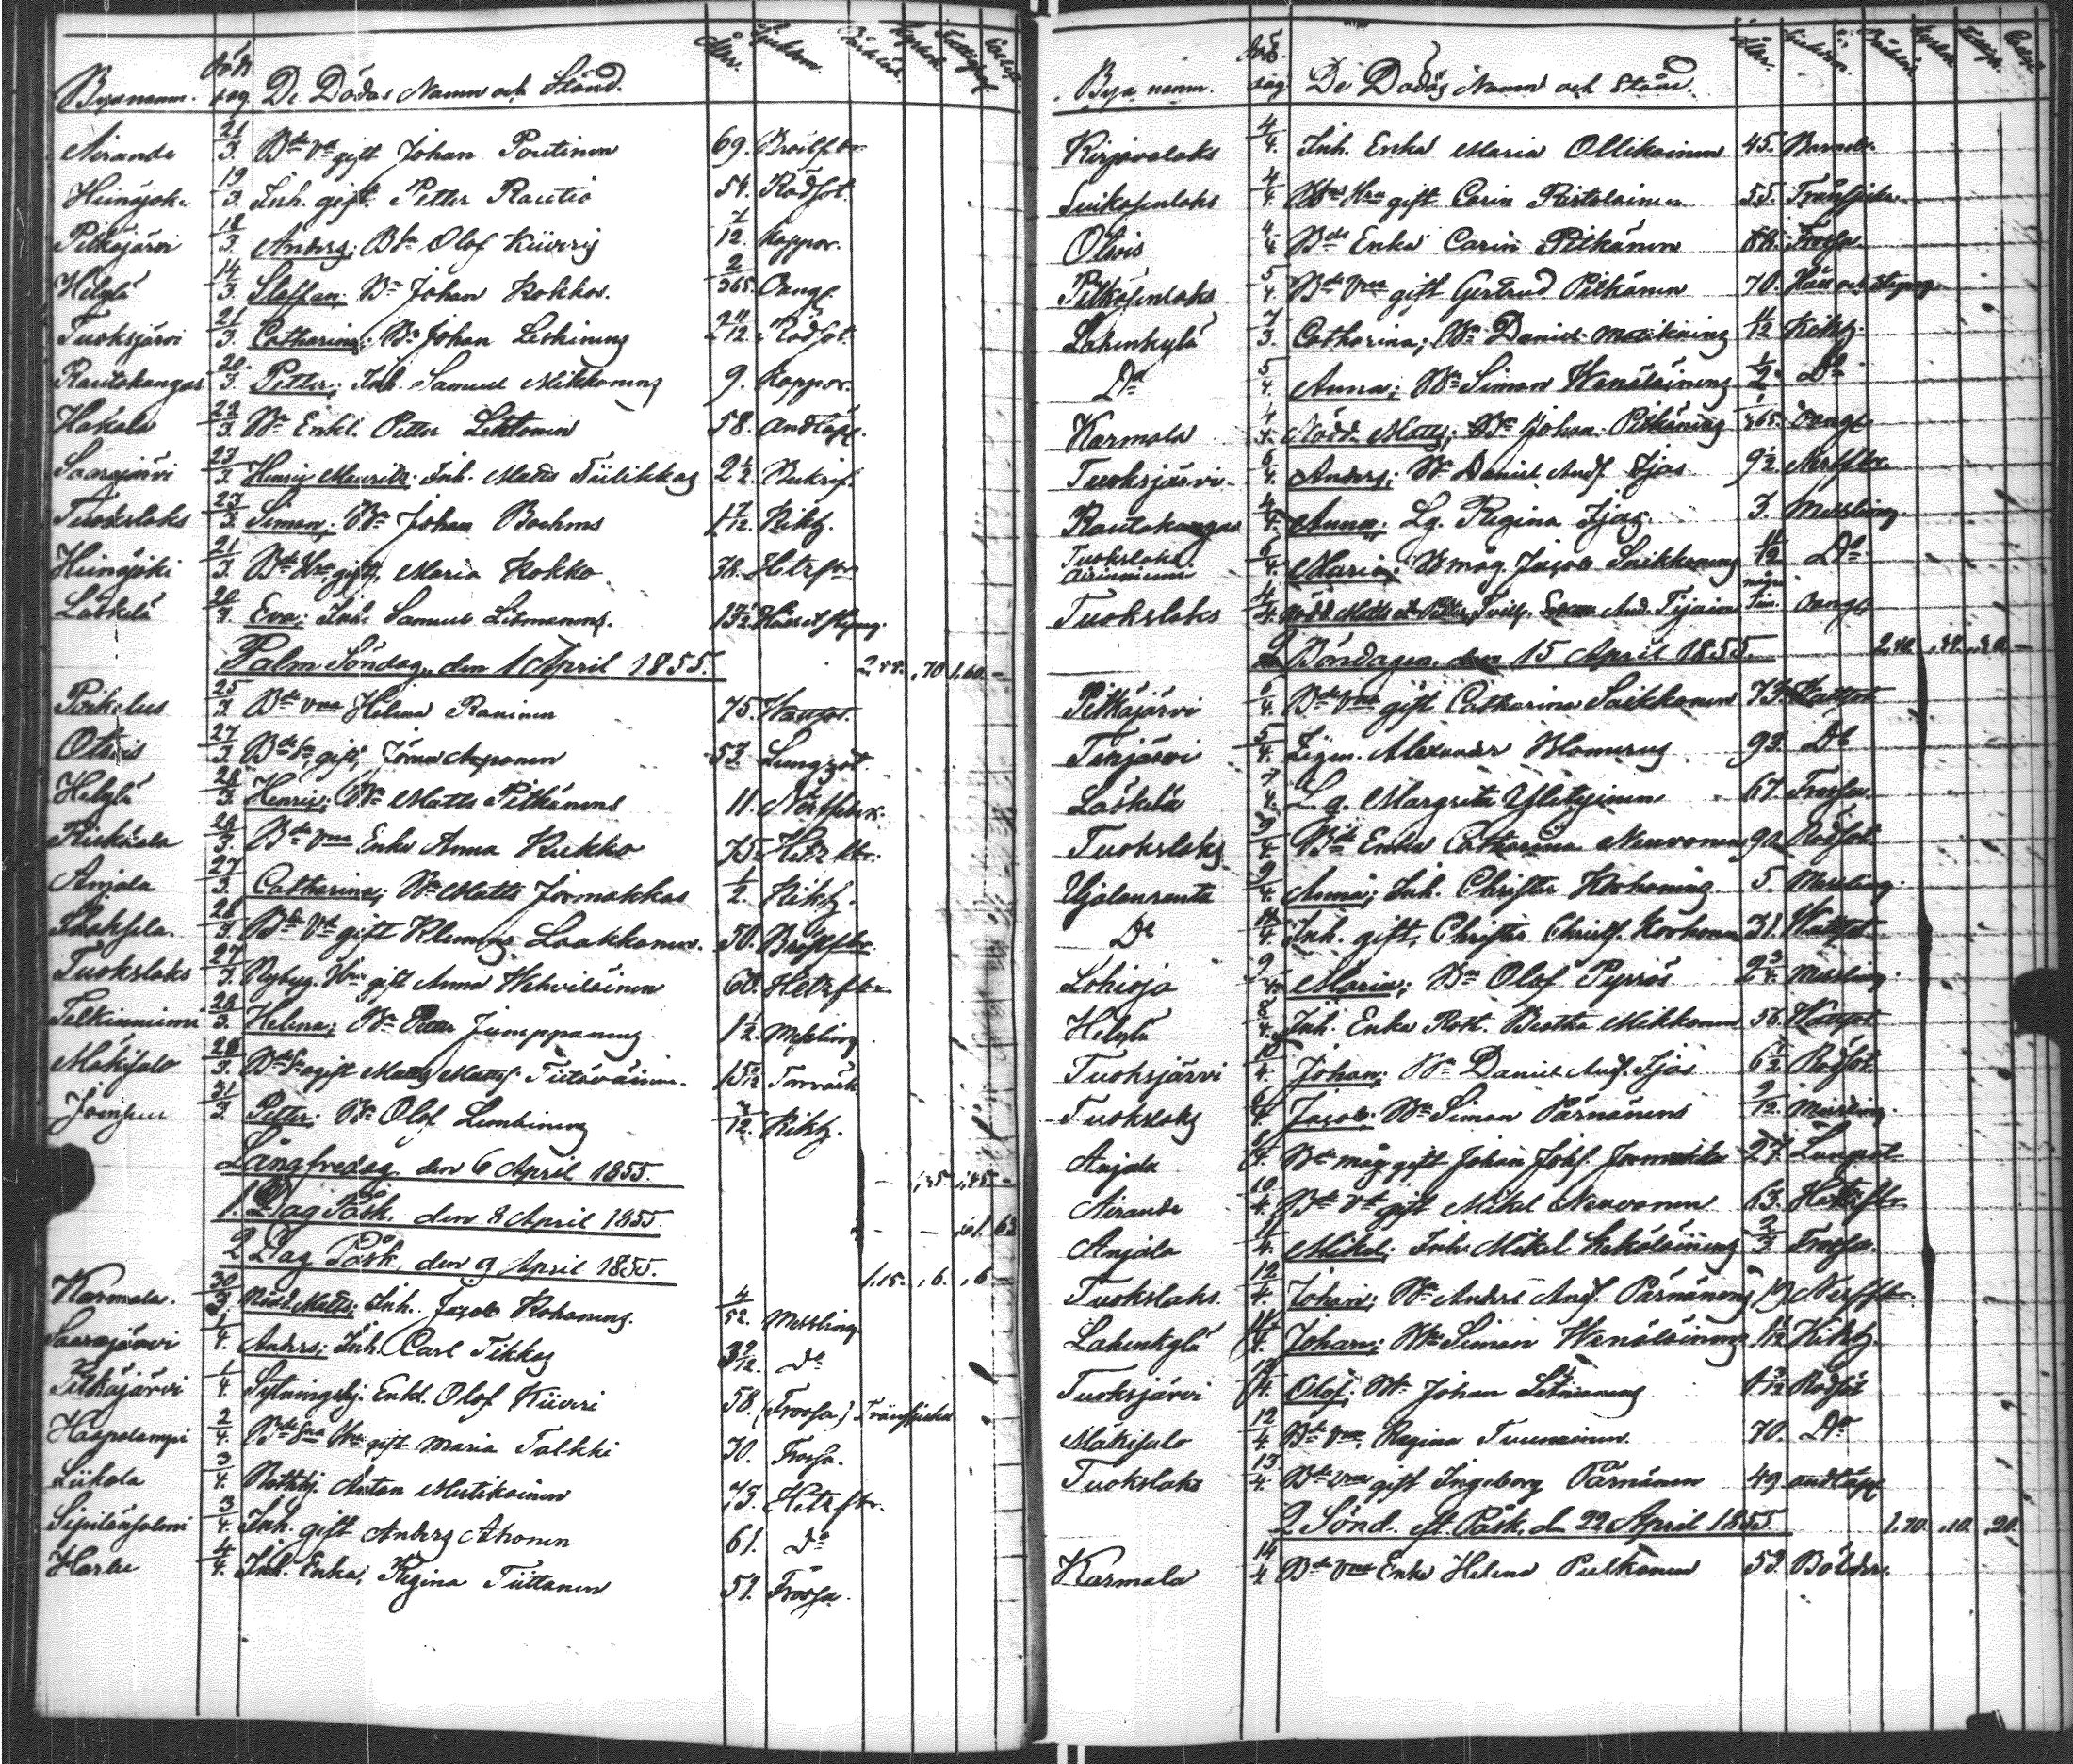 Byanamn. Död dag De Dödas Namn och Stånd. Åldr. Sjukdom.
Airanda 21/3. Bde Vd gift Johan Poutinen 69. Bröstfbr
Hiinajoki 19/3. Inh. gift Petter Rautio 54. Rödsot.
Pitkäjärvi 18/3. Anders; Bde Olof Kiiveris 7/12. Koppor.
Helylä 14/3. Staffan; Bn Johan Kokkos. 2/365. Oangf.
Tuoksjärvi 21/3. Catharina; Bn Johan Leskinens 2 11/12. Rödsot.
Rautakangas 20/3. Petter; Inh. Samuel Mikkonens 9. Koppor.
Hakala 22/3. Bn Enkl. Petter Lehtonen 58. Andtäpp.
Saarajärvi 23/3. Henric Mauritz; Inh. Matts Tiilikkas 2 1/2.
Tuokslaks 23/3. Simon; Bn Johan Boehms 1 7/12. Kikh.
Hiinajoki 21/3. Bde Hru gift, Maria Kokko 38. Hetzfbr
Läskelä 20/3. Eva; Inh. Samuel Litmanens. 13 1/2. Håll et Styng.
Palm Söndag, den 1 April 1855. 2,88. ,70 1,60. -
25/3. Bde Vna Helena Raninen 75. Wattsot.
Otsois 27/3. Bde Sn gift, Jöran Asponen 53. Lungsot.
Helylä 28/3. Henric; Bn Matts Pitkänens 11. Nerffebr.
28/3. Bde Vna Enka Anna Kukko 75. Hetz fbr.
Anjala 27/3. Catharina; Bn Matts Jormakkas 1/2. Kikh.
28/3. Bde Vd gift Klemens Laakkonen. 50. Bröstfbr
Tuokslaks 27/3. Nybyg. Hru gift Anna Wehviläinen 60. Hetzfbr.
Telkinniemi 28/3. Helena; Bn Petter Jumppanens 1 1/2. Messling
Mäkisalo 28/3. Bde Sn ogift Matts Mattsf. Tiitäväinen. 15 1/2 Torrvärk
31/3. Petter; Bn Olof Lumbinens 3/12. Kikh.
Långfredag, den 6 April 1855. - ,35. ,45. -
1. Dag Påsk, den 8 April 1855. - - ,61. 63
2 Dag Påsk, den 9 April 1855. 1,15. ,6. ,6.
Karmala. 30/3. Nödd. Matts; Inh. Jacob Kohonens. 4/52. Messling
Saarajärvi 1/4. Anders; Inh. Carl Tikkas 3 9/12. Do
Pitkäjärvi 1/4. Sytningshj. Enkl. Olof Kiiveri 58. (Frossa) Tränsjuka
Haapalampi 2/4. Bde Sna Hru gift Maria Talkki 30. Frossa.
Liikola 3/4. Rotehj. Anton Mutikainen 73. Hetzfbr.
Sipilänsalmi 3/4. Inh. gift Anders Ahonen 61. Do
Harlu 4/4. Inh. Enka, Regina Tiittanen 52. Frossa.
Bya namn. Död dag De Dödas Namn och Stånd. Åldr. Sjukdom.
Kirjavalaks 4/4. Inh. Enka Maria Ollikainen 45. Barnsb.
4/4. Hru gift Carin Ristolainen 55. Tränsjuka
Otsois 4/4 Bde Enka Carin Pitkänen 68. Frossa
5/4. Bde Vna gift Gertrud Pitkänen 70. Håll och Styng
Lahenkylä 7/3. Catharina; Bn Daniel Matikains 11/12 Kikh.
Do 5/4. Anna; Bn Simon Wenäläinens 1/2. Do
Karmala 4/4. Nödd. Matts; Bn Johan Pitkänens 1/365. Oangf.
Tuoksjärvi. 6/4. Anders; Bn Daniel Andf. Ijas 9 1/2. Nerffbr.
Rautakangas 4/4. Anna; Lg. Regina Ijas 3. Messling.
Tuokslaks Airinniemi 6/4. Maria; B måg Jacob Saikkonens 11/12 Do
Tuokslaks 4/4. Nödd Matts et Petter Tvill. And. Ijäin några tim. Oangf.
Böndagen, den 15 April 1855. 2,40. ,34. ,30. -
Pitkäjärvi 6/4. Bde Vna gift Catharina Saikkonen 73. Wattsot
Tenjärvi 5/4. Alexander Blomerus 93. Do
Läskelä 7/4. L. g. Margreta Ylityinen 67. Frossa.
Tuokslaks 9/4. Bde Enka Catharina Neuvonen 90. Rödsot.
Yjälänranta 9/4. Anna; Inh. Christer Korhonens 5. Messling.
Do 11/4. Inh. gift, Christer Christf. Korhonen 31. Wattsot
Lohioja 9/4. Maria; Bn Olof Pyrräs 2 3/4. Messling.
Helylä 8/4. Inh. Enka Rost. Beatha Mikkonen 56. Wattsot
Tuoksjärvi 10/4. Johan; Bn Daniel Andf. Ijas 6 1/2 Rödsot
Tuokslaks 6/4. Jacob; Bn Simon Pärnänens 9/12. Messling.
Anjala Bde måg gift Johan Johsf. Jormakka 27. Lungsot
Airanda 10/4. Bde Vd gift Mikel Neuvonen 63. Hetzfbr
Anjala 11/4. Mikel; Inh. Mikel Kekäläinens 2/3. Frossa.
Tuokslaks. 12/4. Johan; Bn Anders Andf. Pärnänens 19. Nerffbr.
Lahenkylä Johan; Bn Simon Wenäläinens Kikh.
Tuoksjärvi Olof; Bn Johan Litmanens 1 3/12 Rödsot
Mäkisalo 12/4. Bde Vna Regina Tuunainen. 70. Do
Tuokslaks 13/4. Bde Vna gift Ingeborg Pärnänen 49 andtäpp
2 Sönd. ef. Påsk. d. 22 April 1855. 1,70. ,10. ,20.
Karmala 14/4 Bde Vna Enka Helena Pulkonen 53. Bölder.